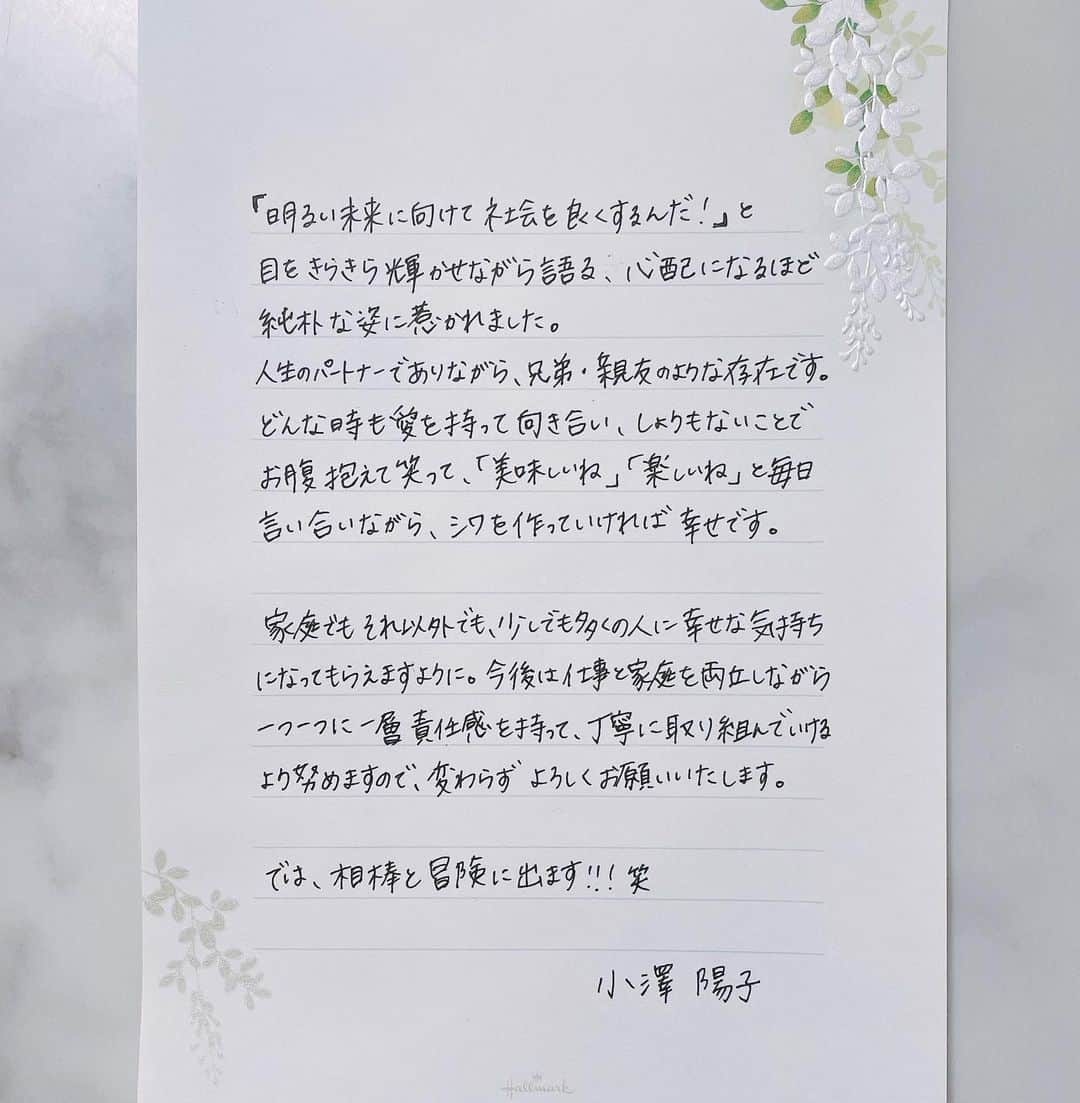 『明るい未来に向けて社会を良くするんだ！』と
目をきらきら輝かせながら語る、心配になるほど
純朴な姿に惹かれました。
人生のパートナーでありながら、兄弟・親友のような存在です。
どんな時も愛を持って向き合い、しょうもないことで
お腹抱えて笑って、「美味しいね」「楽しいね」と毎日
言い合いながら、シワを作っていければ幸せです。
家庭でもそれ以外でも、少しでも多くの人に幸せな気持ち
になってもらえますように。今後は仕事と家庭を両立しながら
一つ一つに一層責任感を持って、丁寧に取り組んでいける
よう努めますので、変わらずよろしくお願いいたします。
では、相棒と冒険に出ます!!!笑
小澤 陽子
Hallmark